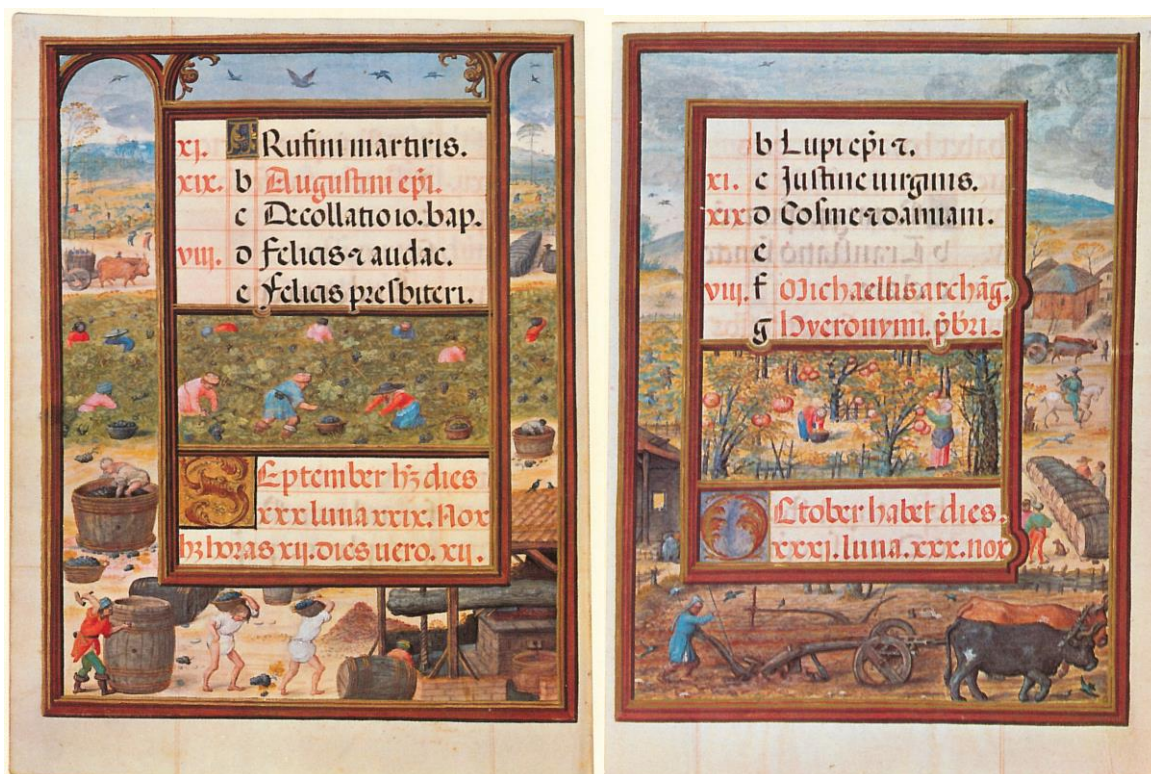 xj. A Rufini martiris.
xix. b Augustini ep̄i.
c Decollatio io. bap.
viij. d Felicis ⁊ audac.
e Felicis presbiteri.
September hꝫ dies
xxx luna xxix. Nox
hꝫ horas xij. dies uero. xij.
b Lupi ep̄i ⁊.
xj. c Justine uirginis.
xix d Cosme ⁊ damiani.
e
viij. f Michaelis archāg.
g Hyeronymi. p̄bri.
October habet dies.
xxxj. luna. xxx. nox